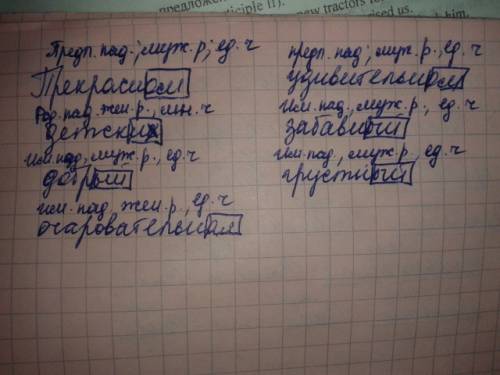 предложе
participle II).
new tractors fo
ised us.
him.
Предл. пад.; муж. р; ед. ч
Прекрасном
Род. пад. жен. р., мн. ч
детских
Им. пад., муж. р., ед. ч
добрый
им. пад. жен. р., ед. ч
очаровательная
предл. пад; муж. р., ед. ч
удивительном
Им. пад., муж. р., ед. ч
забавный
Им. пад., муж. р., ед. ч
грустный